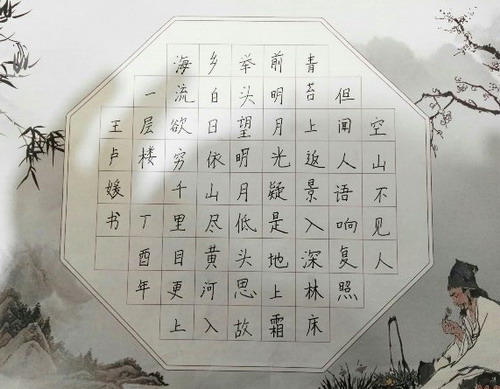 空山不见人
但闻人语响复照
青苔上返景入深林床
前明月光疑是地上霜
举头望明月低头思故
乡白日依山尽黄河入
海流欲穷千里目更上
一层楼 丁酉年
王卢媛书